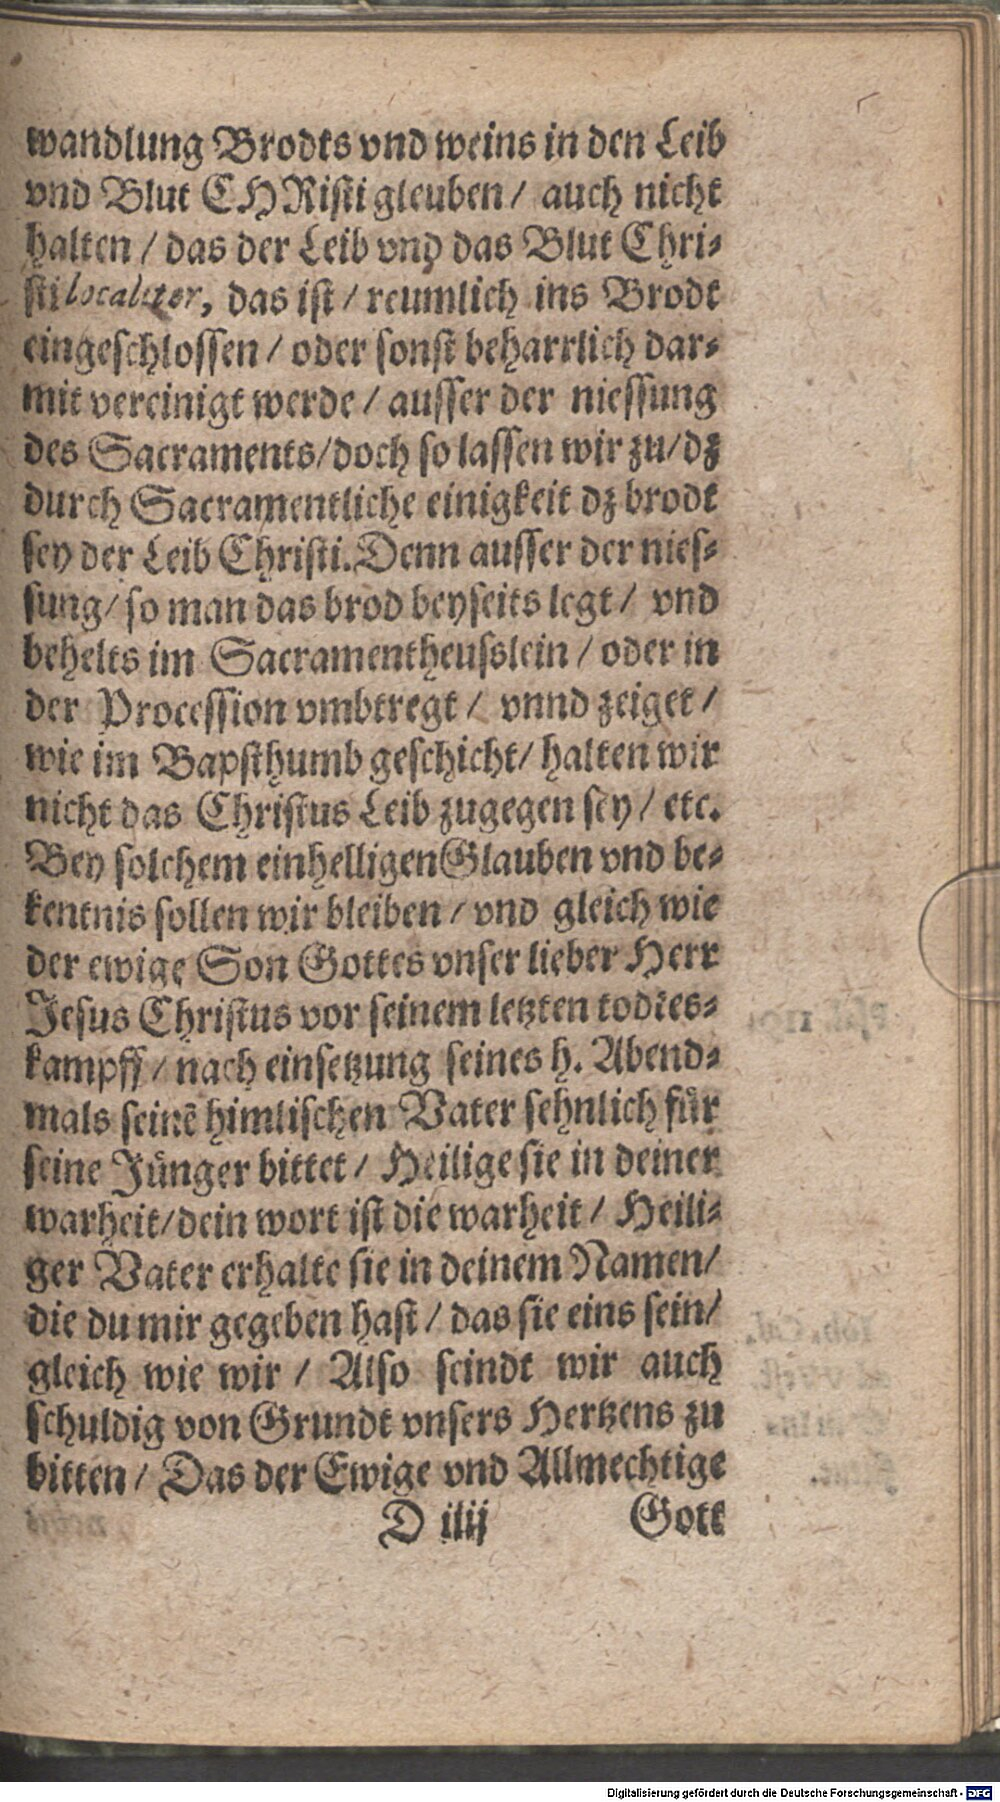 wandlung Brodts vnd weins in den Leib
vnd Blut CHRisti gleuben / auch nicht
halten / das der Leib vnd das Blut Chri-
sti localiter, das ist / reumlich ins Brodt
eingeschlossen / oder sonst beharrlich dar-
mit vereinigt werde / ausser der niessung
des Sacraments/doch so lassen wir zu/dz
durch Sacramentliche einigkeit dz brodt
sey der Leib Christi. Denn ausser der nies-
sung/ so man das brod beyseits legt / vnd
behelts im Sacramentheuslein / oder in
der Procession vmbtregt / vnnd zeiget /
wie im Bapsthumb geschicht/ halten wir
nicht das Christus Leib zugegen sey / etc.
Bey solchem einhelligen Glauben vnd be-
kentnis sollen wir bleiben / vnd gleich wie
der ewige Son Gottes vnser lieber Herr
Jesus Christus vor seinem letzten todtes-
kampff / nach einsetzung seines h. Abend-
mals seinē himlischen Vater sehnlich für
seine Jünger bittet / Heilige sie in deiner
warheit/dein wort ist die warheit / Heili-
ger Vater erhalte sie in deinem Namen/
die du mir gegeben hast / das sie eins sein/
gleich wie wir / Also seindt wir auch
schuldig von Grundt vnsers Hertzens zu
bitten / Das der Ewige vnd Allmechtige
D iiij Gott
Digitalisierung gefördert durch die Deutsche Forschungsgemeinschaft - DFG